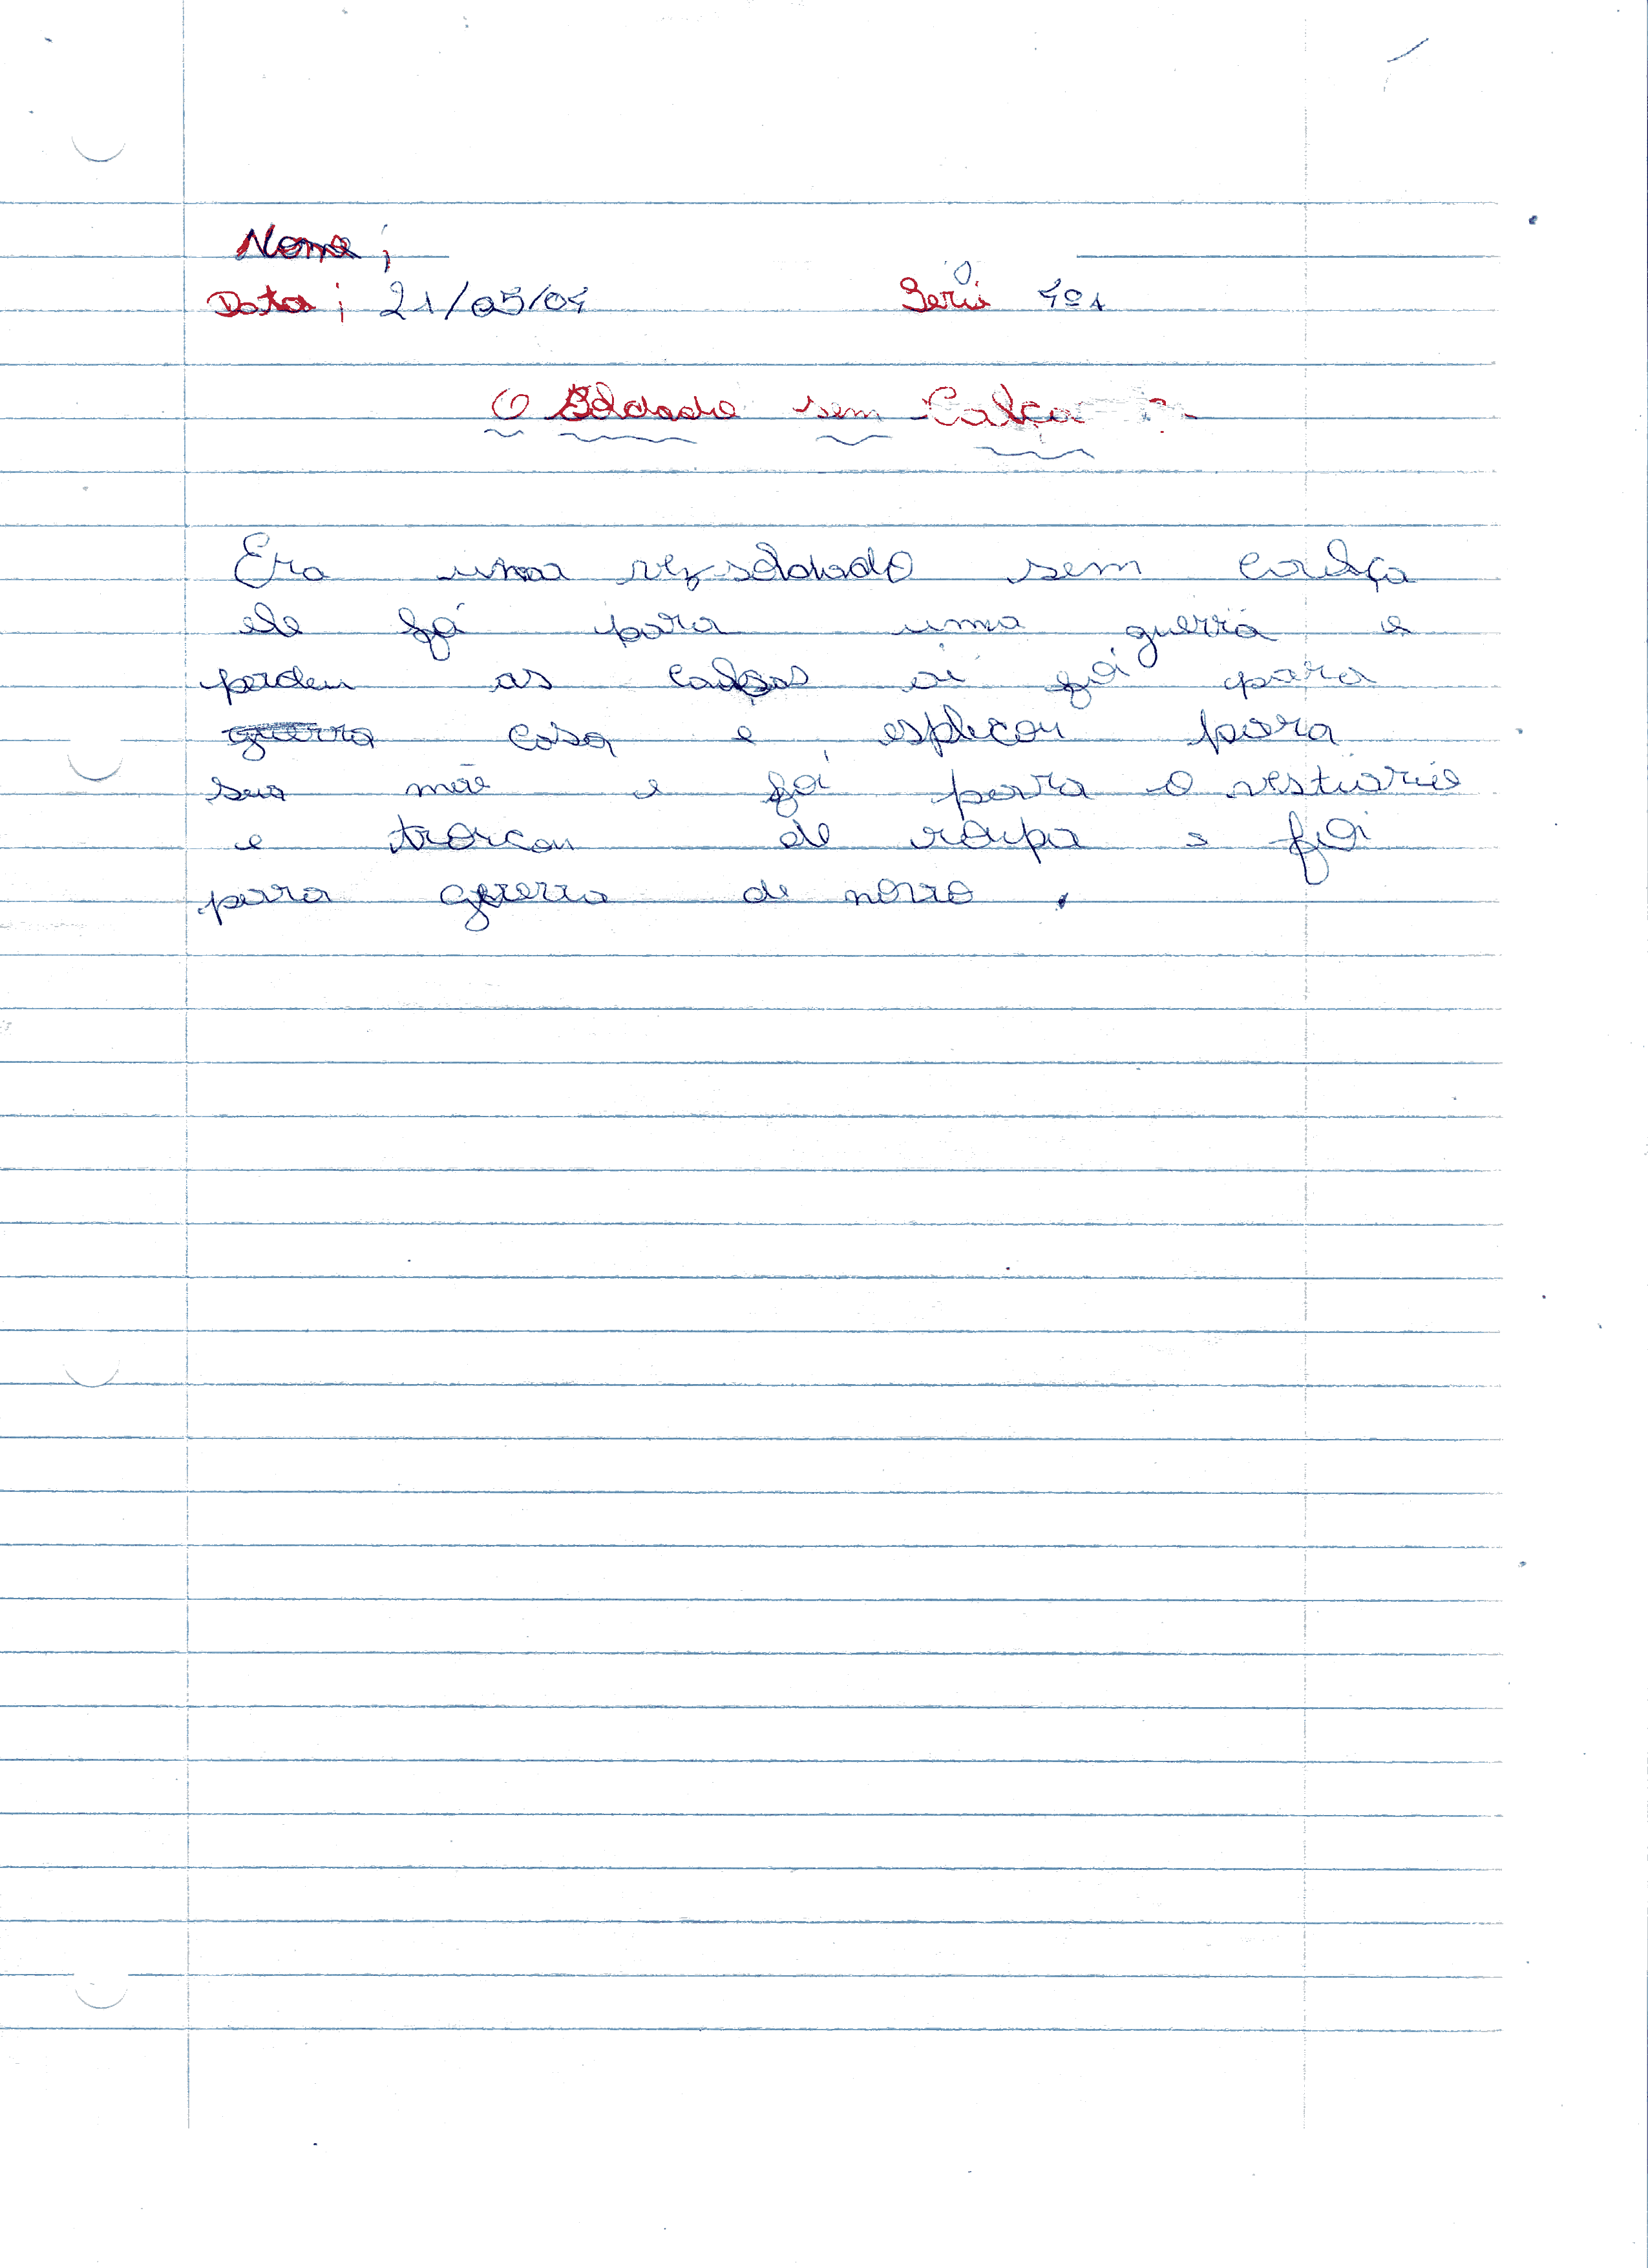 Nome;
Data; 21/05/04 Serie 4º1
O Soldado sem Calça
Era uma vez soldado sem calça
ele foi para uma guerra e
perdeu as calças ai foi para
guerra casa e esplicou para
sua mãe e foi para o vestiario
e trorcou de roupa e foi
para guerra de novo.